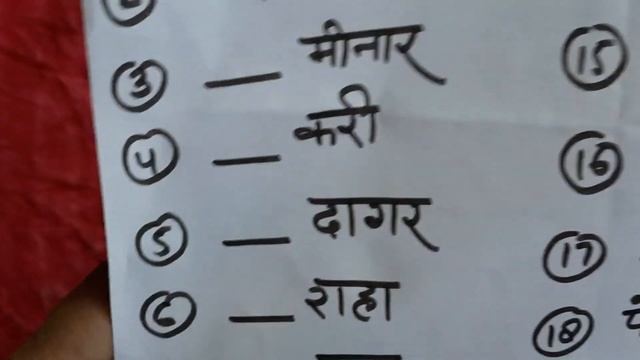 ③ __ मीनार
④ __ करी
⑤ __ दागर
⑥ __ राहा
⑮
⑯
⑰
⑱